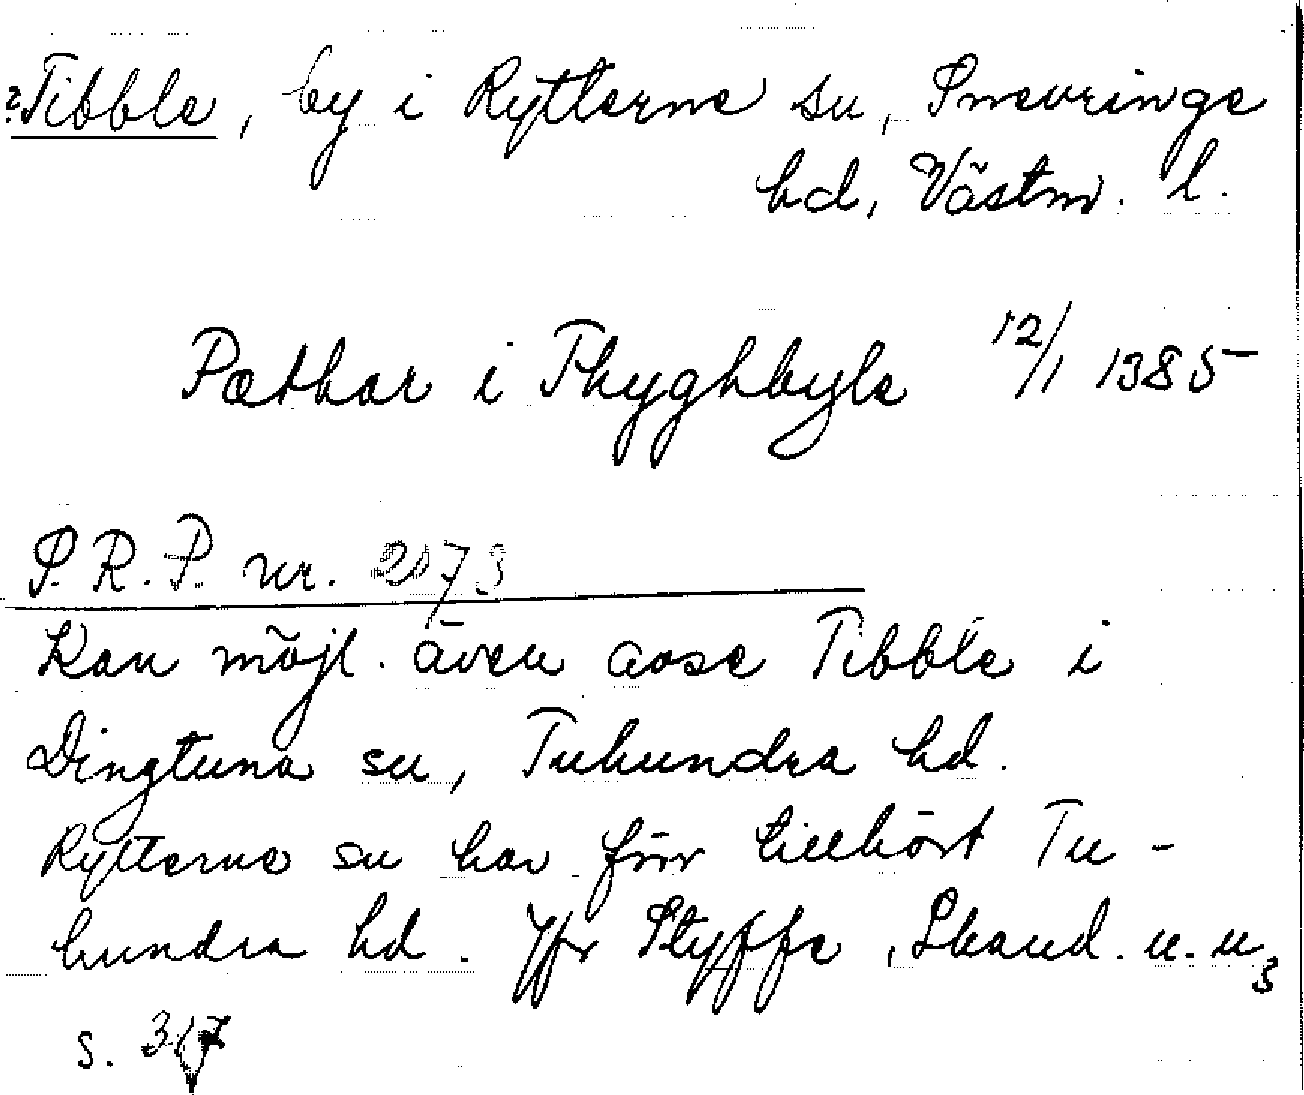 ?Tibble, by i Rytterne sn, Snevringe
hd, Västm. l.
Pæthar i Thyghbyle 12/1 1385
P.R.P. nr. 2173
Kan möjl. även avse Tibble i
Dingtuna sn, Tuhundra hd.
Rytterne sn har förr tillhört Tu-
hundra hd. Jfr Styffe, Skand. u. u.3
s. 317